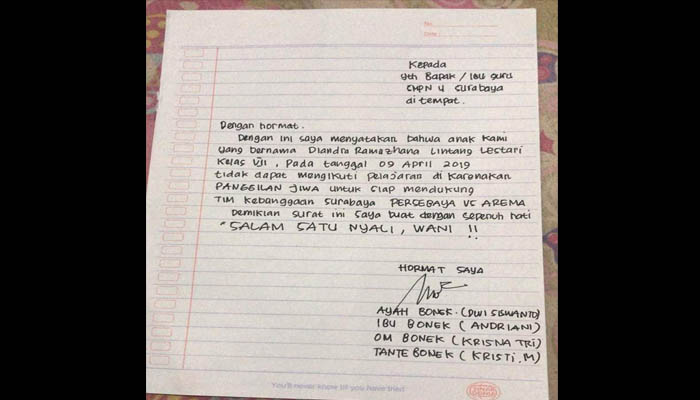 No.
Date.
Kepada
Yth Bapak / Ibu guru
SMPN 4 Surabaya
di tempat.
Dengan hormat.
Dengan ini saya menyatakan bahwa anak kami
yang bernama Diandra Ramazhana Lintang Lestari
Kelas VII, Pada tanggal 09 April 2019
tidak dapat mengikuti pelajaran di karenakan
PANGGILAN JIWA untuk siap mendukung
TIM kebanggaan Surabaya PERSEBAYA VS AREMA
Demikian surat ini saya buat dengan sepenuh hati
"SALAM SATU NYALI, WANI !!
HORMAT SAYA
AYAH BONEK. (DWI SISWANTO)
IBU BONEK (ANDRIANI)
OM BONEK (KRISNA TRI)
TANTE BONEK (KRISTI.M)
You'll never know till you have tried